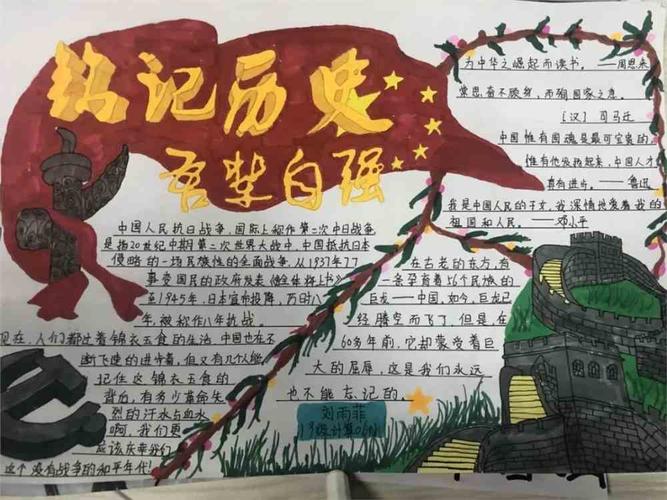 铭记历史
吾辈自强
为中华之崛起而读书。——周恩来
常思奋不顾身,而殉国家之急。
(汉)司马迁
中国惟有国魂是最可宝贵的
惟有他发扬起来,中国人才
真有进步。——鲁迅
我是中国人民的子女,我深情地爱着我的
祖国和人民。——邓小平
中国人民抗日战争,国际上称作第二次中日战争
是指20世纪中期第二次世界大战中,中国抵抗日本
侵略的一场民族性的全面战争,从1937年77
事变国民的政府发表《
至1945年,日本宣布投降,历时八
年,被称作八年抗战。
现在,人们都过着锦衣玉食的生活,中国也在不
断飞速的进步着,但又有几个人能
记住这锦衣玉食的
背后,有多少革命先
烈的汗水与血水
啊,我们更
应该庆幸我们
这个没有战争的和平年代!
在古老的东方,有
一条孕育着56个民族的
巨龙——中国,如今,巨龙已
经腾空而飞了,但是,在
60多年前,它却蒙受着巨
大的屈辱,这是我们永远
也不能忘记的。
刘雨菲